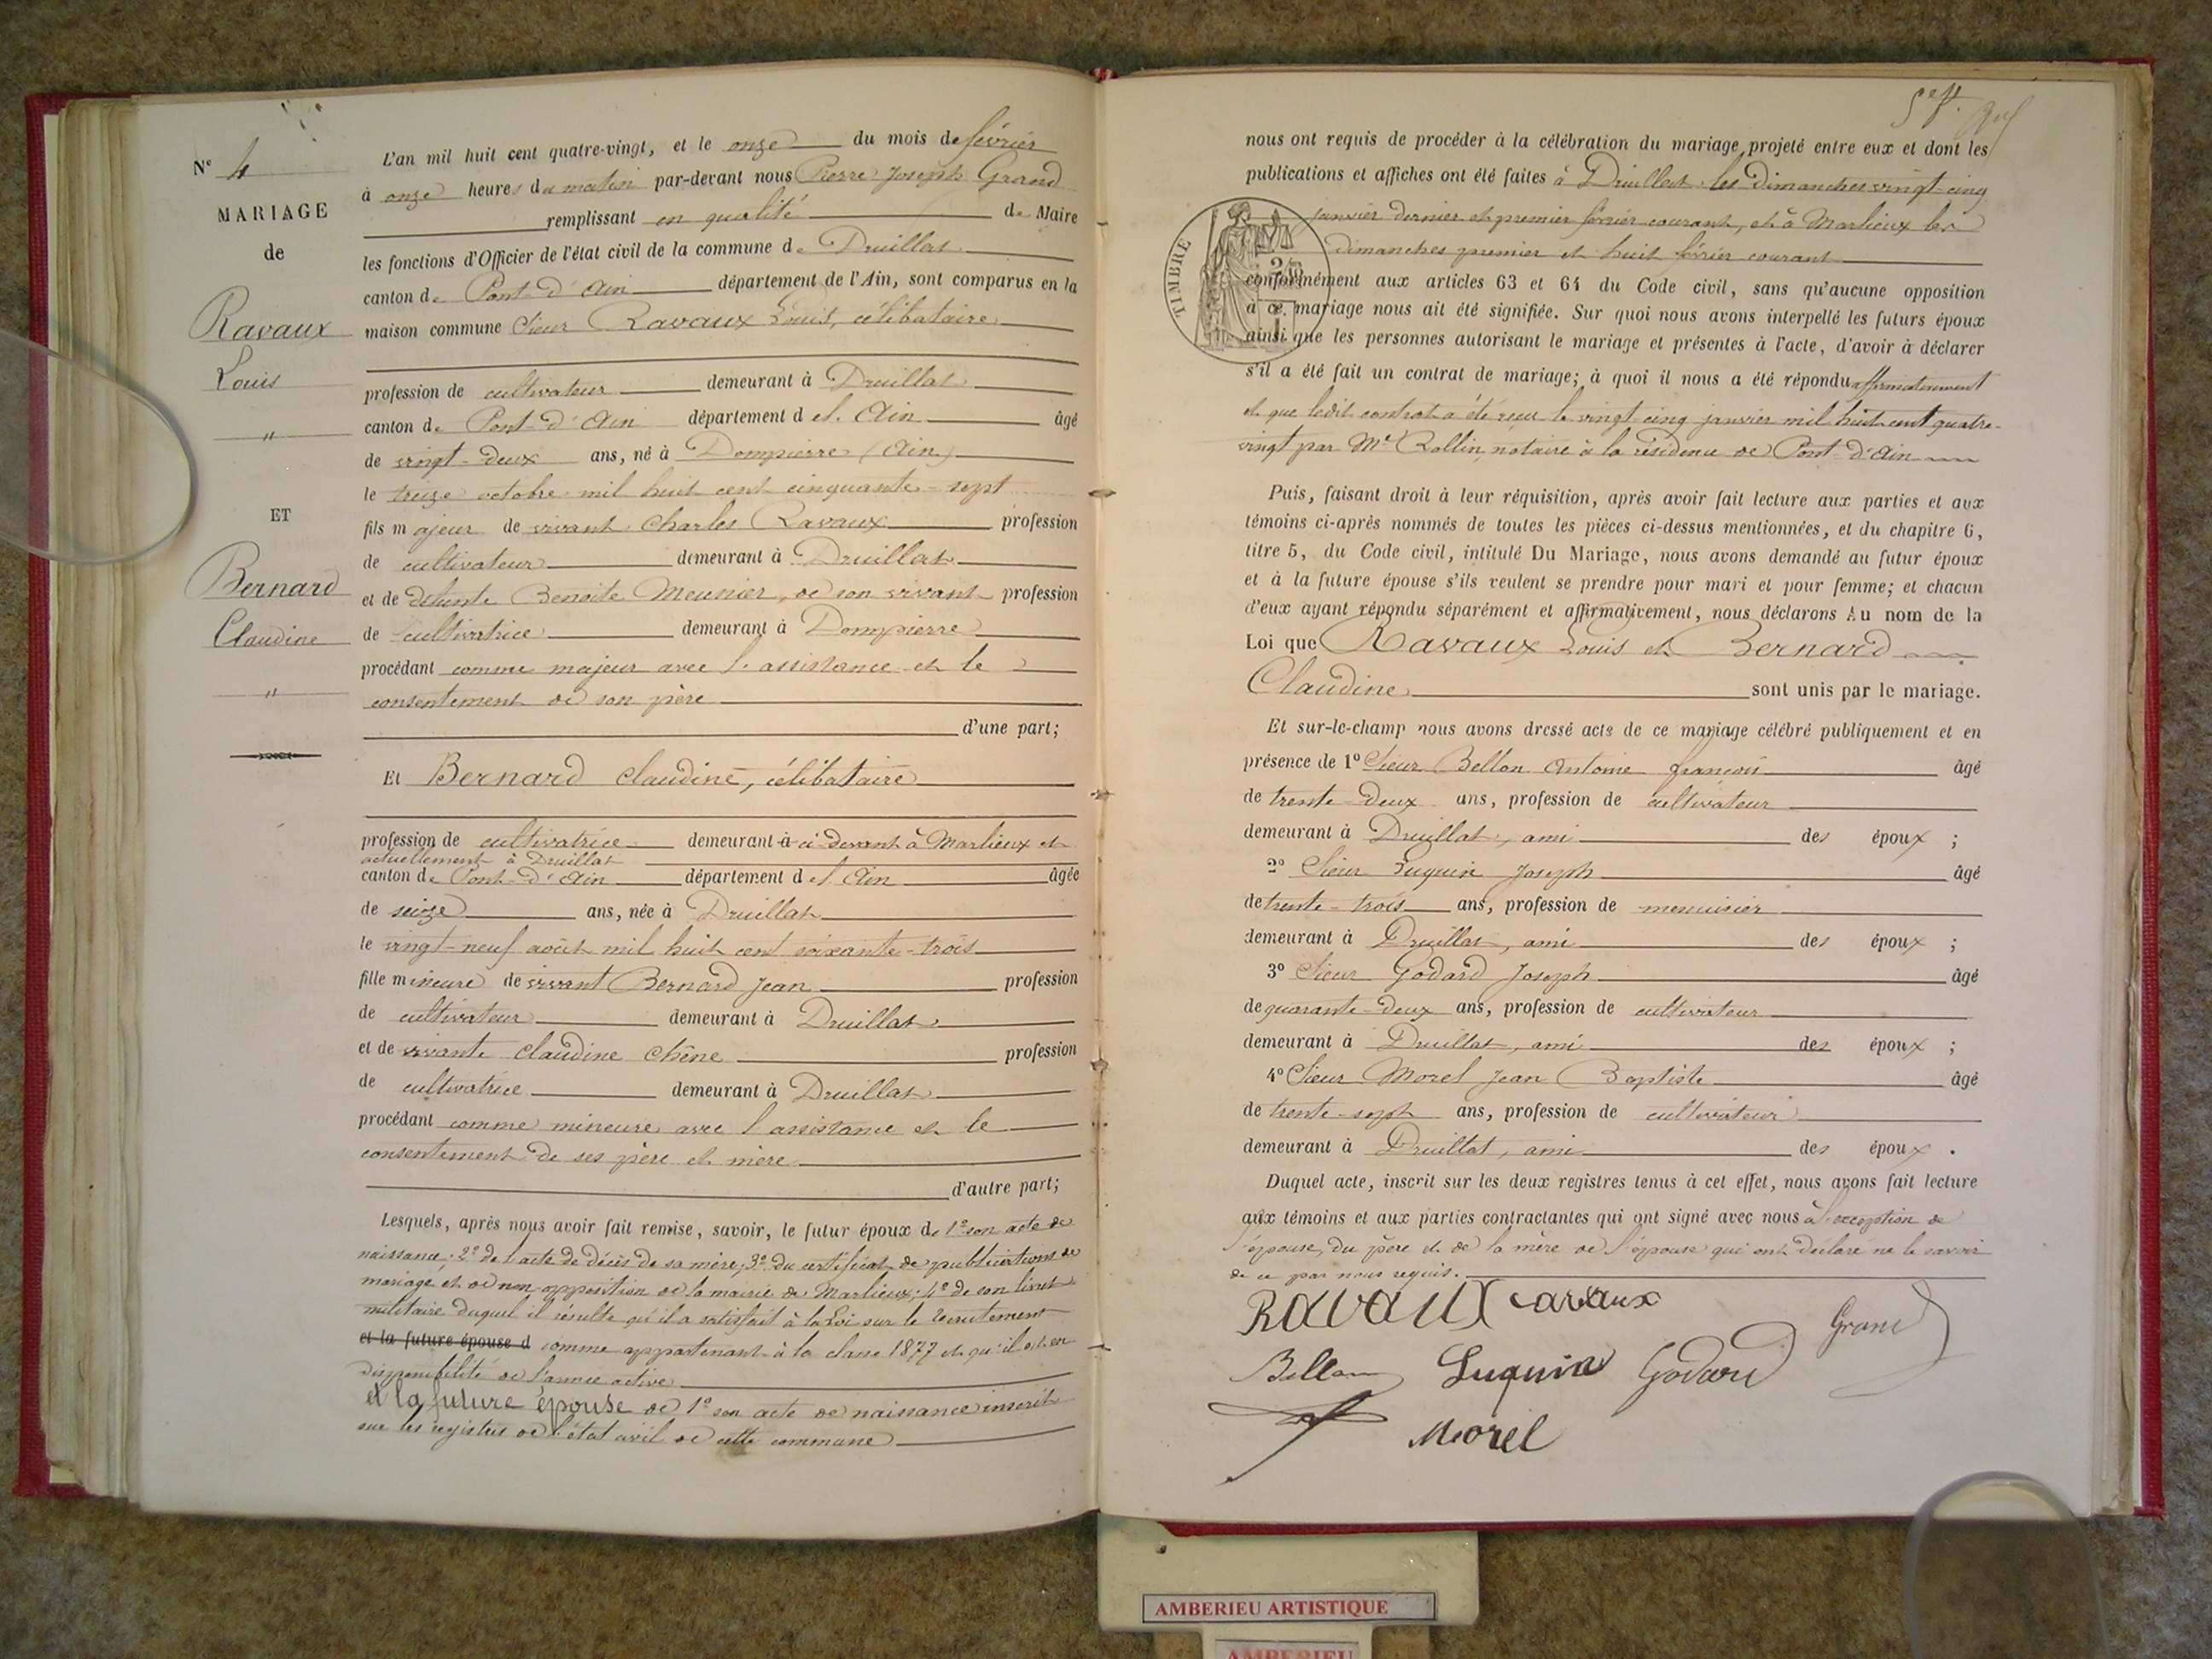 N° 4
MARIAGE
de
Ravaux
Louis
"
ET
Bernard
Claudine
"
L'an mil huit cent quatre-vingt, et le onze du mois de février
à onze heures du matin par-devant nous Pierre Joseph Grand
remplissant en qualité de Maire
les fonctions d'Officier de l'état civil de la commune de Druillat
canton de Pont-d'Ain département de l'Ain, sont comparus en la
maison commune Sieur Ravaux Louis, célibataire
profession de cultivateur demeurant à Druillat
canton de Pont-d'Ain département de l'Ain âgé
de vingt-deux ans, né à Dompierre (Ain)
le treize octobre mil huit cent cinquante-sept
fils majeur de vivant Charles Ravaux profession
de cultivateur demeurant à Druillat
et de défunte Benoite Meunier, de son vivant profession
de cultivatrice demeurant à Dompierre
procédant comme majeur avec l'assistance et le
consentement de son père
d'une part;
Et Bernard Claudine, célibataire
profession de cultivatrice demeurant à ci-devant à Marlieux et
actuellement à Druillat
canton de Pont-d'Ain département de l'Ain âgée
de seize ans, née à Druillat
le vingt-neuf août mil huit cent soixante-trois
fille mineure de vivant Bernard Jean profession
de cultivateur demeurant à Druillat
et de vivante Claudine Chêne profession
de cultivatrice demeurant à Druillat
procédant comme mineure avec l'assistance et le
consentement de ses père et mère
d'autre part;
Lesquels, après nous avoir fait remise, savoir, le futur époux de 1° son acte de
naissance; 2° de l'acte de décès de sa mère; 3° du certificat de publications de
mariage et de non opposition de la mairie de Marlieux; 4° de son livret
militaire duquel il résulte qu'il a satisfait à la Loi sur le recrutement
et la future épouse d comme appartenant à la classe 1877 et qu'il est en
disponibilité de l'armée active
et la future épouse de 1° son acte de naissance inscrit
sur les registres de l'état civil de cette commune
nous ont requis de procéder à la célébration du mariage projeté entre eux et dont les
publications et affiches ont été faites à Druillat les dimanches vingt-cinq
janvier dernier et premier février courant, et à Marlieux les
dimanches premier et huit février courant
TIMBRE
conformément aux articles 63 et 64 du Code civil, sans qu'aucune opposition
à ce mariage nous ait été signifiée. Sur quoi nous avons interpellé les futurs époux
ainsi que les personnes autorisant le mariage et présentes à l'acte, d'avoir à déclarer
s'il a été fait un contrat de mariage; à quoi il nous a été répondu affirmativement
et que ledit contrat a été reçu le vingt-cinq janvier mil huit cent quatre-
vingt par Me Rollin, notaire à la résidence de Pont-d'Ain
Puis, faisant droit à leur réquisition, après avoir fait lecture aux parties et aux
témoins ci-après nommés de toutes les pièces ci-dessus mentionnées, et du chapitre 6,
titre 5, du Code civil, intitulé Du Mariage, nous avons demandé au futur époux
et à la future épouse s'ils veulent se prendre pour mari et pour femme; et chacun
d'eux ayant répondu séparément et affirmativement, nous déclarons Au nom de la
Loi que Ravaux Louis et Bernard
Claudine sont unis par le mariage.
Et sur-le-champ nous avons dressé acte de ce mariage célébré publiquement et en
présence de 1° Sieur Bellon Antoine françois âgé
de trente-deux ans, profession de cultivateur
demeurant à Druillat, ami des époux ;
2° Sieur Luquin Joseph âgé
de trente-trois ans, profession de menuisier
demeurant à Druillat, ami des époux ;
3° Sieur Godard Joseph âgé
de quarante-deux ans, profession de cultivateur
demeurant à Druillat, ami des époux ;
4° Sieur Morel Jean Baptiste âgé
de trente-sept ans, profession de cultivateur
demeurant à Druillat, ami des époux .
Duquel acte, inscrit sur les deux registres tenus à cet effet, nous avons fait lecture
aux témoins et aux parties contractantes qui ont signé avec nous à l'exception de
l'épouse, du père et de la mère de l'épouse qui ont déclaré ne le savoir
de ce par nous requis.
Ravaux Ravaux
Grand
Bellon Luquin Godard
Morel
AMBERIEU ARTISTIQUE
AMBERIEU